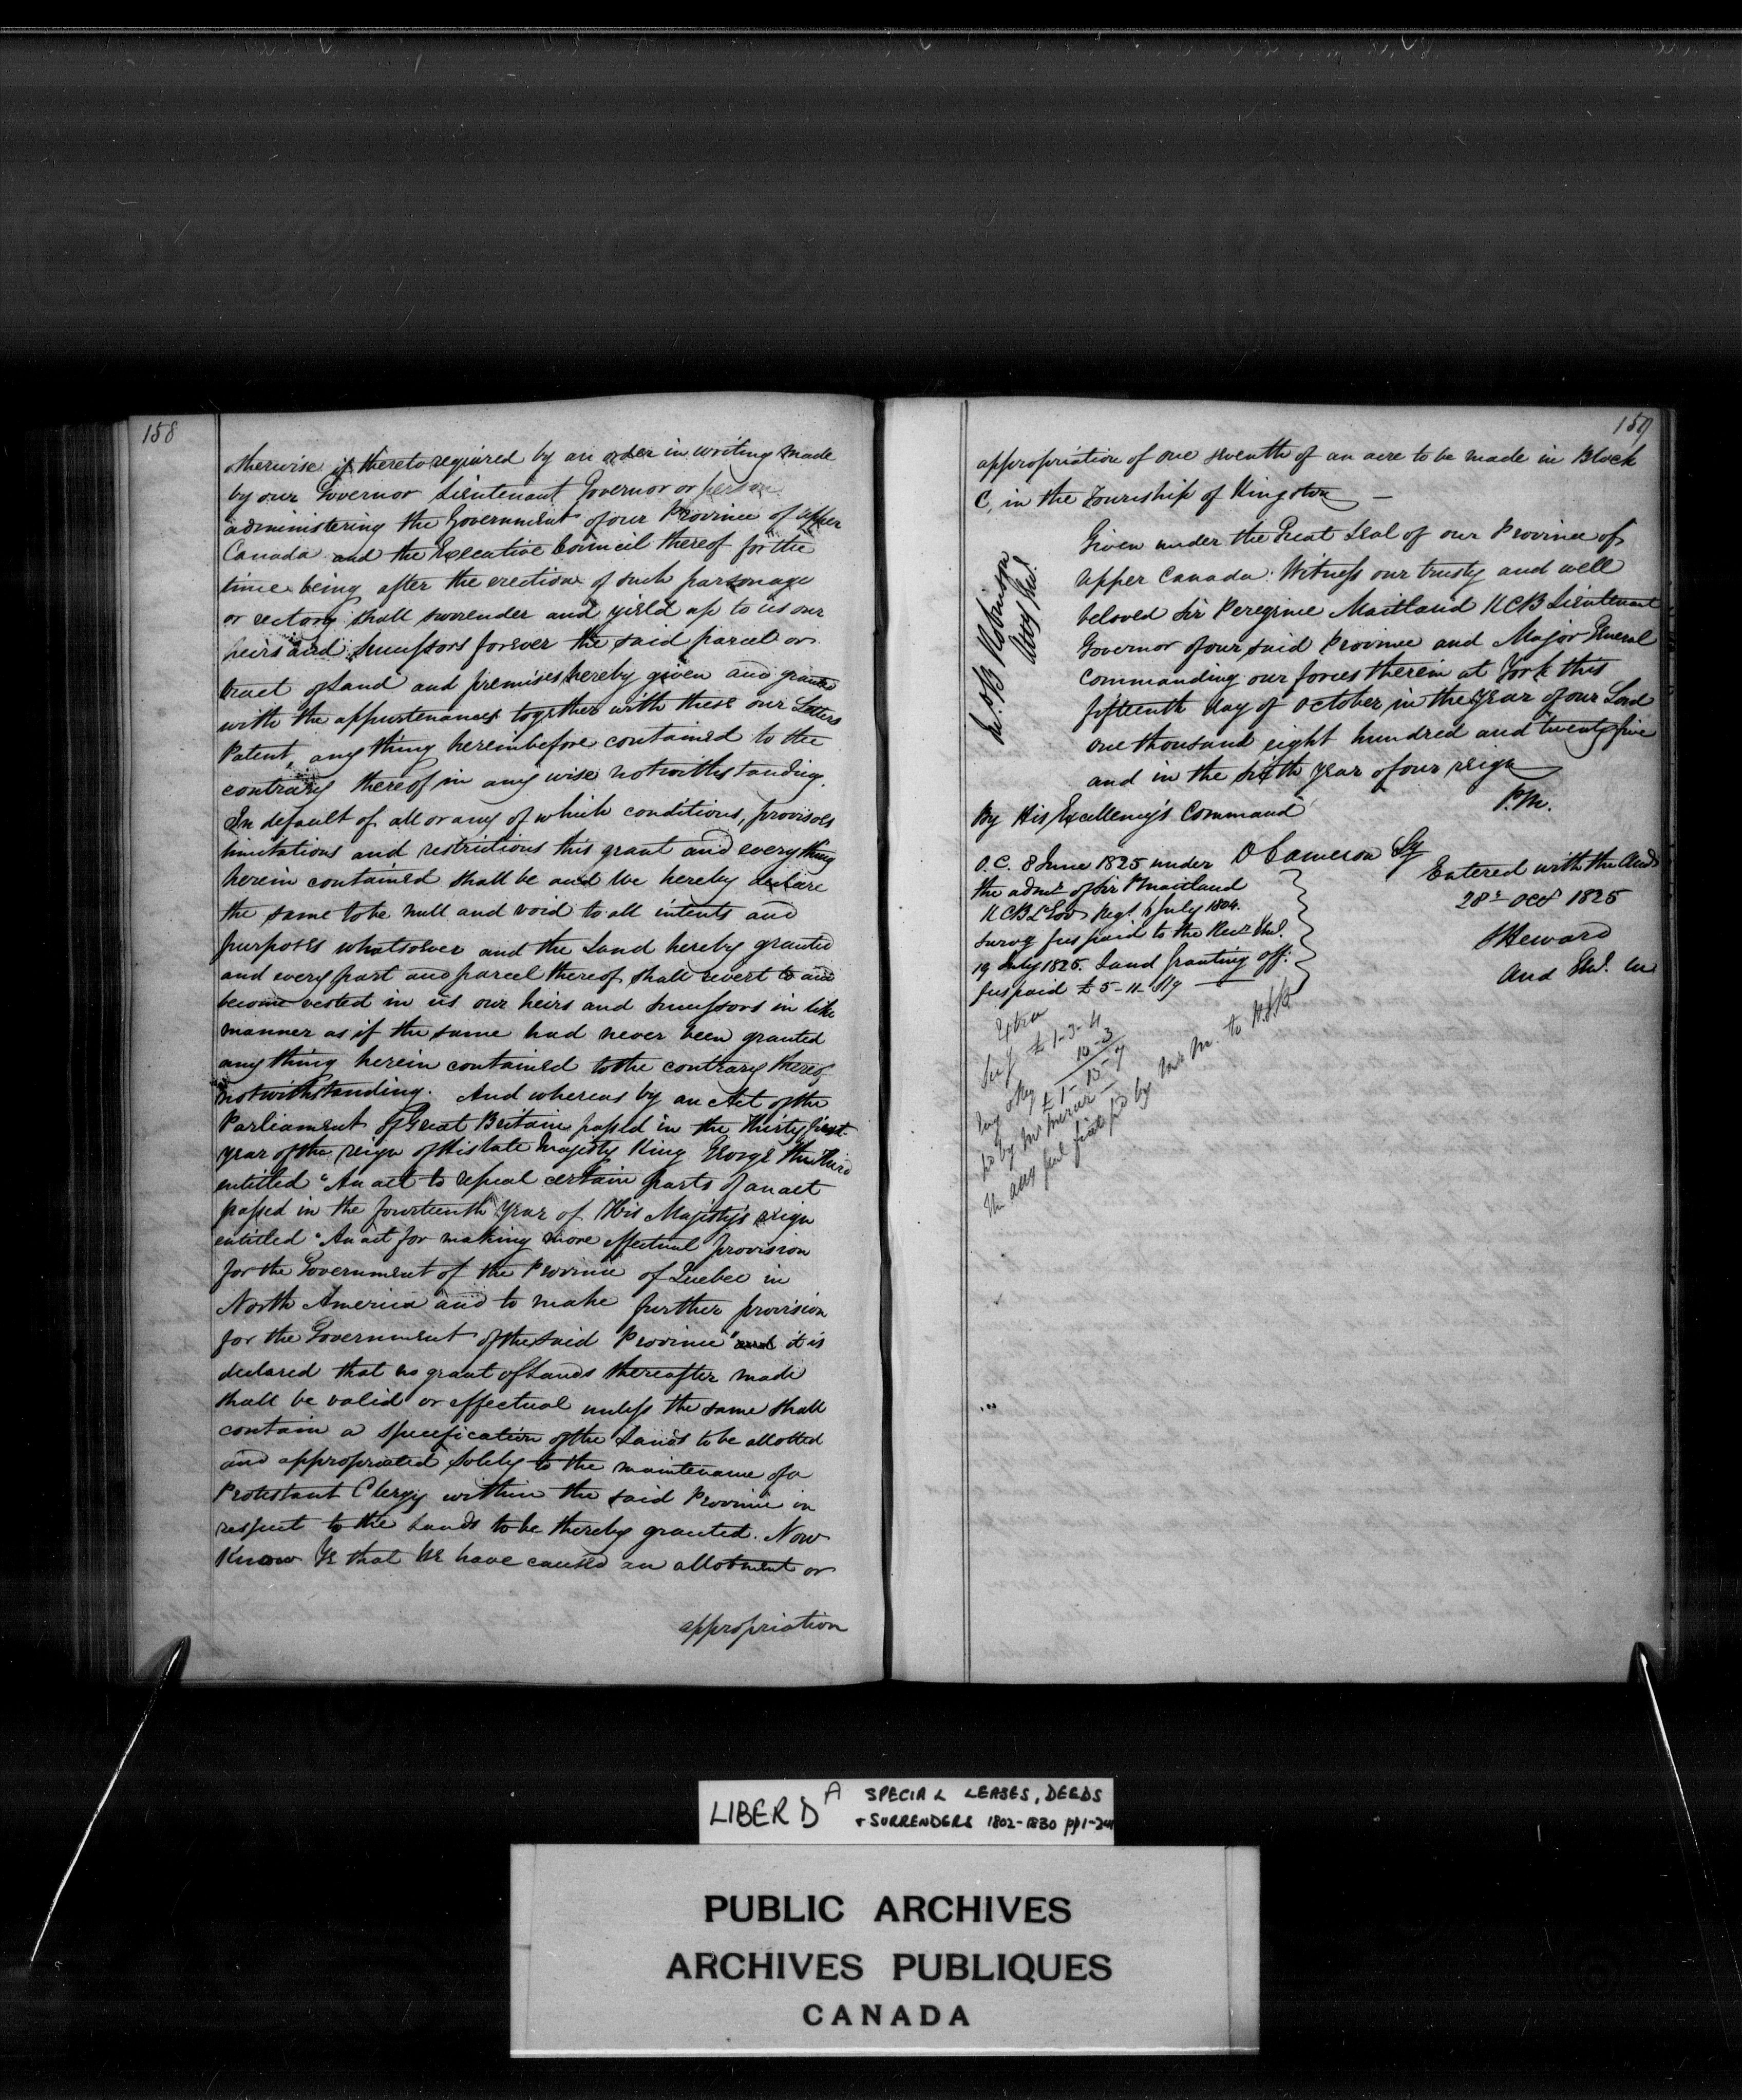 158
otherwise if thereto required by an order in writing made
by our Governor Lieutenant Governor or person
administering the Government of our Province of Upper
Canada and the Executive Council thereof for the
time being after the erection of such parsonage
or rectory shall surrender and yield up to us our
heirs and successors forever the said parcel or
tract of Land and premises hereby given and granted
with the appurtenances together with these our Letters
Patent, any thing hereinbefore contained to the
contrary thereof in any wise notwithstanding.
In default of all or any of which conditions, provisoes
limitations and restrictions this grant and everything
herein contained shall be and We hereby declare
the same to be null and void to all intents and
purposes whatsoever and the Land hereby granted
and every part and parcel thereof shall revert to and
become vested in us our heirs and successors in like
manner as if the same had never been granted
any thing herein contained to the contrary thereof
notwithstanding. And whereas by an Act of the
Parliament of Great Britain passed in the Thirty first
year of the reign of His late Majesty King George the Third
entitled "An act to repeal certain parts of an act
passed in the fourteenth year of His Majesty's reign
entitled "An act for making more effectual provision
for the Government of the Province of Quebec in
North America and to make further provision
for the Government of the said Province" it is
declared that no grant of Lands thereafter made
shall be valid or effectual unless the same shall
contain a specification of the Lands to be allotted
and appropriated solely to the maintenance of a
Protestant Clergy within the said Province in
respect to the Lands to be thereby granted. Now
Know Ye that We have caused an allotment or
appropriation
159
appropriation of one seventh of an acre to be made in Block
C, in the Township of Kingston —
Given under the Great Seal of our Province of
Upper Canada: Witness our trusty and well
beloved Sir Peregrine Maitland KCB Lieutenant
Governor of our said Province and Major General
Commanding our forces therein at York this
fifteenth day of October, in the year of our Lord
one thousand eight hundred and twenty five
and in the sixth year of our reign
P.M.
Robinson
Atty Genl.
By His Excellency's Command
D Cameron Sy
O.C. 8 June 1825 under
the admn of Sir P Maitland
KCB Lt Gov Regt 6 July 1804.
Survg fees paid to the Recr Genl.
19 July 1825. Land Granting off:
fees paid £5-11-
Entered with the Aud
28th Oct 1825
S Heward
Aud Genl.
Extra
£1-3-4
£1-15-7
pd by Mr
pd by Mr M. to
LIBER D A SPECIAL LEASES, DEEDS
+ SURRENDERS 1802-1830
PUBLIC ARCHIVES
ARCHIVES PUBLIQUES
CANADA